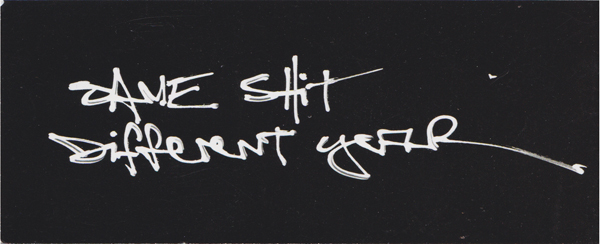 SAME SHiT
Different year